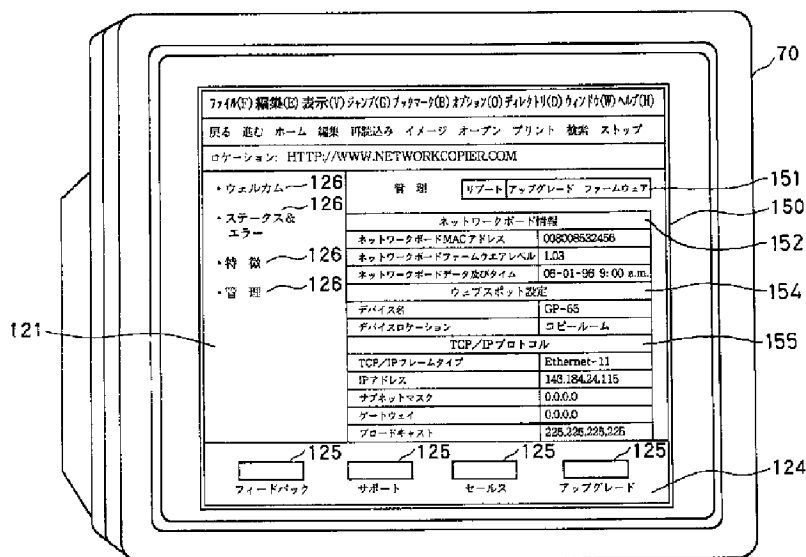 70
ファイル(F) 編集(E) 表示(V) ジャンプ(G) ブックマーク(B) オプション(O) ディレクトリ(D) ウィンドウ(W) ヘルプ(H)
戻る 進む ホーム 編集 再読込み イメージ オープン プリント 検索 ストップ
ロケーション: HTTP://WWW.NETWORKCOPIER.COM
・ウェルカム 126
・ステークス& 126
エラー
・特徴 126
・管理 126
121
管理 リブート アップグレード ファームウェア 151
150
ネットワークボード情報 152
ネットワークボードMACアドレス 008008532456
ネットワークボードファームウエアレベル 1.03
ネットワークボードデータ及びタイム 06-01-96 9:00 a.m.
ウェブスポット設定 154
デバイス名 GP-65
デバイスロケーション コピールーム
TCP/IPプロトコル 155
TCP/IPフレームタイプ Ethernet-11
IPアドレス 143.184.24.115
サブネットマスク 0.0.0.0
ゲートウェイ 0.0.0.0
ブロードキャスト 225.225.225.225
125 125 125 125
フィードバック サポート セールス アップグレード
124